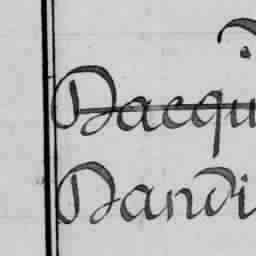 Dacqu
Dandi